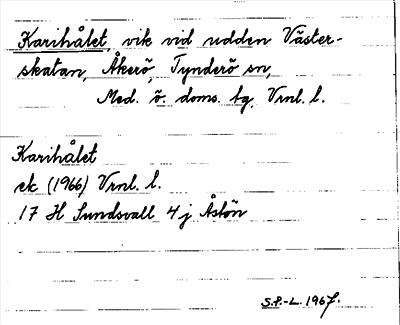 Karihålet, vik vid udden Väster-
skatan, Åkerö, Tynderö sn,
Med. ö. doms. tg, Vrnl. l.
Karihålet
ek (1966) Vrnl. l.
17 H Sundsvall 4 j Åstön
S.P.-L. 1967.